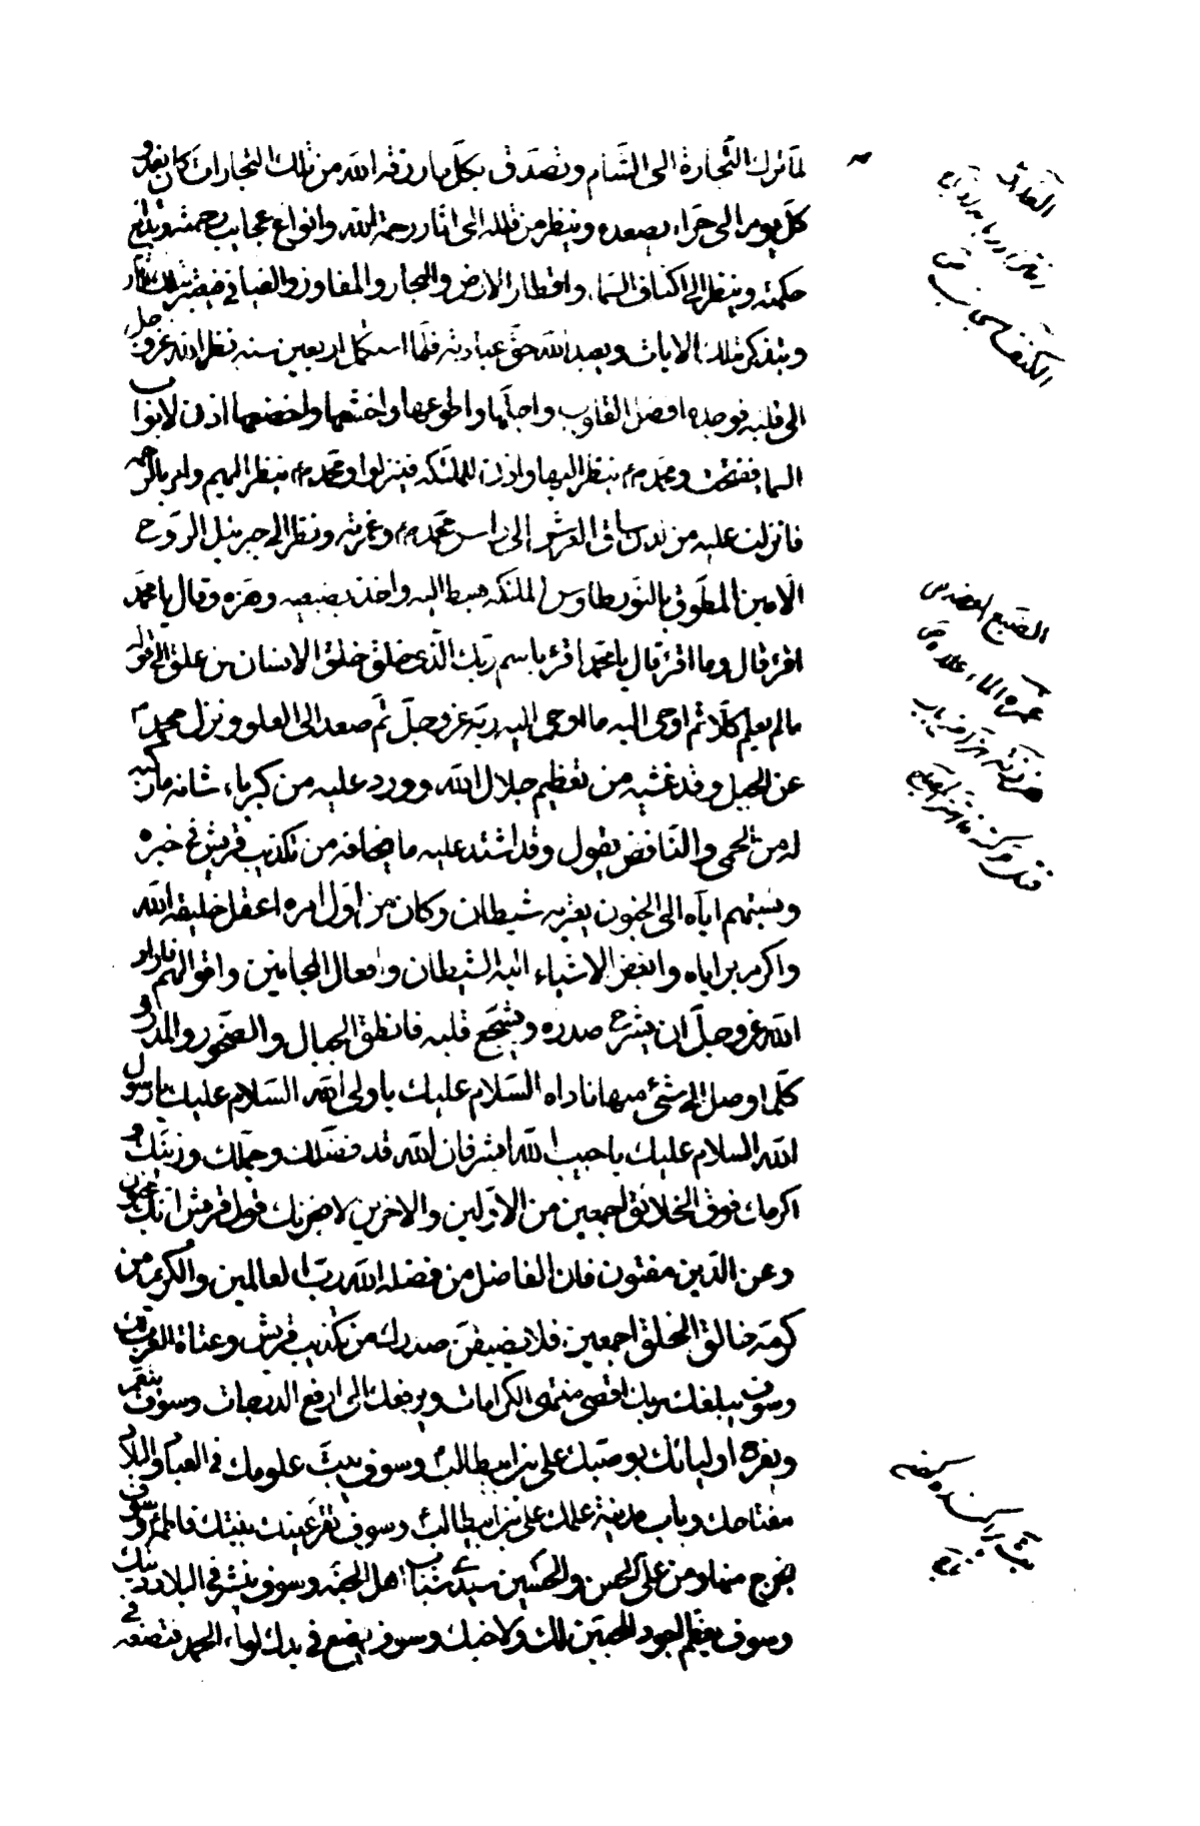 لمّا ترك التّجارة الى الشّام وتصدّق بكلّ ما رزقه الله من تلك التجارات كان يغدو
كلّ يوم الى حراء يصعده وينظر من قلله الى اثار رحمة الله وانواع عجايب رحمته وبدايع
حكمته وينظر الى اكناف السّماء واقطار الارض والبحار والمفاوز والفيافى فيعتبر بتلك الاثار
ويتذكّر بتلك الايات ويعبد الله حقّ عبادته فلمّا استكمل اربعين سنه نظر الله عزّ وجلّ
الى قلبه فوجده افضل القلوب واجلّها واطوعها واخشعها واخضعها اذن لابواب
السماء ففتحت ومحمّد م ينظر اليها واذن للملئكة فنزلوا ومحمّد م ينظر اليهم وامر بالرحمه
فانزلت عليه من لدن ساق العرش الى راس محمّد م وغرته ونظر الى جبرئيل الرّوح
الامين المطوّق بالنّور طاوس الملئكه هبط اليه واخذ بضبعيه وهزه وقال يا محمّد
اقرء قال وما اقرء قال يا محمّد اقرء باسم ربّك الّذى خلق خلق الانسان من علق الى قوله
ما لم يعلم كلّا ثم اوحى اليه ما اوحى اليه ربّه عزّ وجلّ ثمّ صعد الى العلو ونزل محمد م
عن الجبل وقد غشيه من تعظيم جلال الله وورد عليه من كبرياء شانه ما ركبه
له من الحمى والنّافض يقول وقد اشتد عليه ما يخافه من تكذيب قريش فى خبره
ونسبتهم ايّاه الى الجنون يعتريه شيطان وكان من اوّل امره اعقل خليقة الله
واكرم براياه وابغض الاشياء اليه الشيطان وافعال المجانين واقوالهم فاراد
الله عزّ وجلّ ان يشرح صدره ويشجّع قلبه فانطق الجبال والصّخور والمدر و
كلّما وصل الى شئ منها ناداه السّلام عليك يا ولى الله السّلام عليك يا رسول
الله السلام عليك يا حبيب الله ابشر فان الله قد فضّلك وجمّلك وزيّنك و
اكرمك فوق الخلائق اجمعين من الاوّلين والاخرين لا يحزنك قول قريش انّك مجنون
وعن الدّين مفتون فان الفاضل من فضله الله ربّ العالمين والكريم من
كرّمه خالق الخلق اجمعين فلا يضيقنّ صدرك من تكذيب قريش وعتاة العرب
وسوف يبلغك ربك اقصى منتهى الكرامات ويرفعك الى ارفع الدرجات وسوف ينعّم
ويفرح اوليائك بوصيّك على بن ابيطالب وسوف يبثّ علومك فى العباد والبلاد
مفتاحك وباب مدينة علمك على بن ابيطالب وسوف يقرّ عينك ببنتك فاطمة وسوف
يخرج منها ومن على الحسن والحسين سيّدى شباب اهل الجنّه وسوف ينشر فى البلاد دينك
وسوف يعظّم اجور المحبّين لك ولاخيك وسوف يضع فى يدك لواء الحمد فتضعه فى
الضبع العضد ص